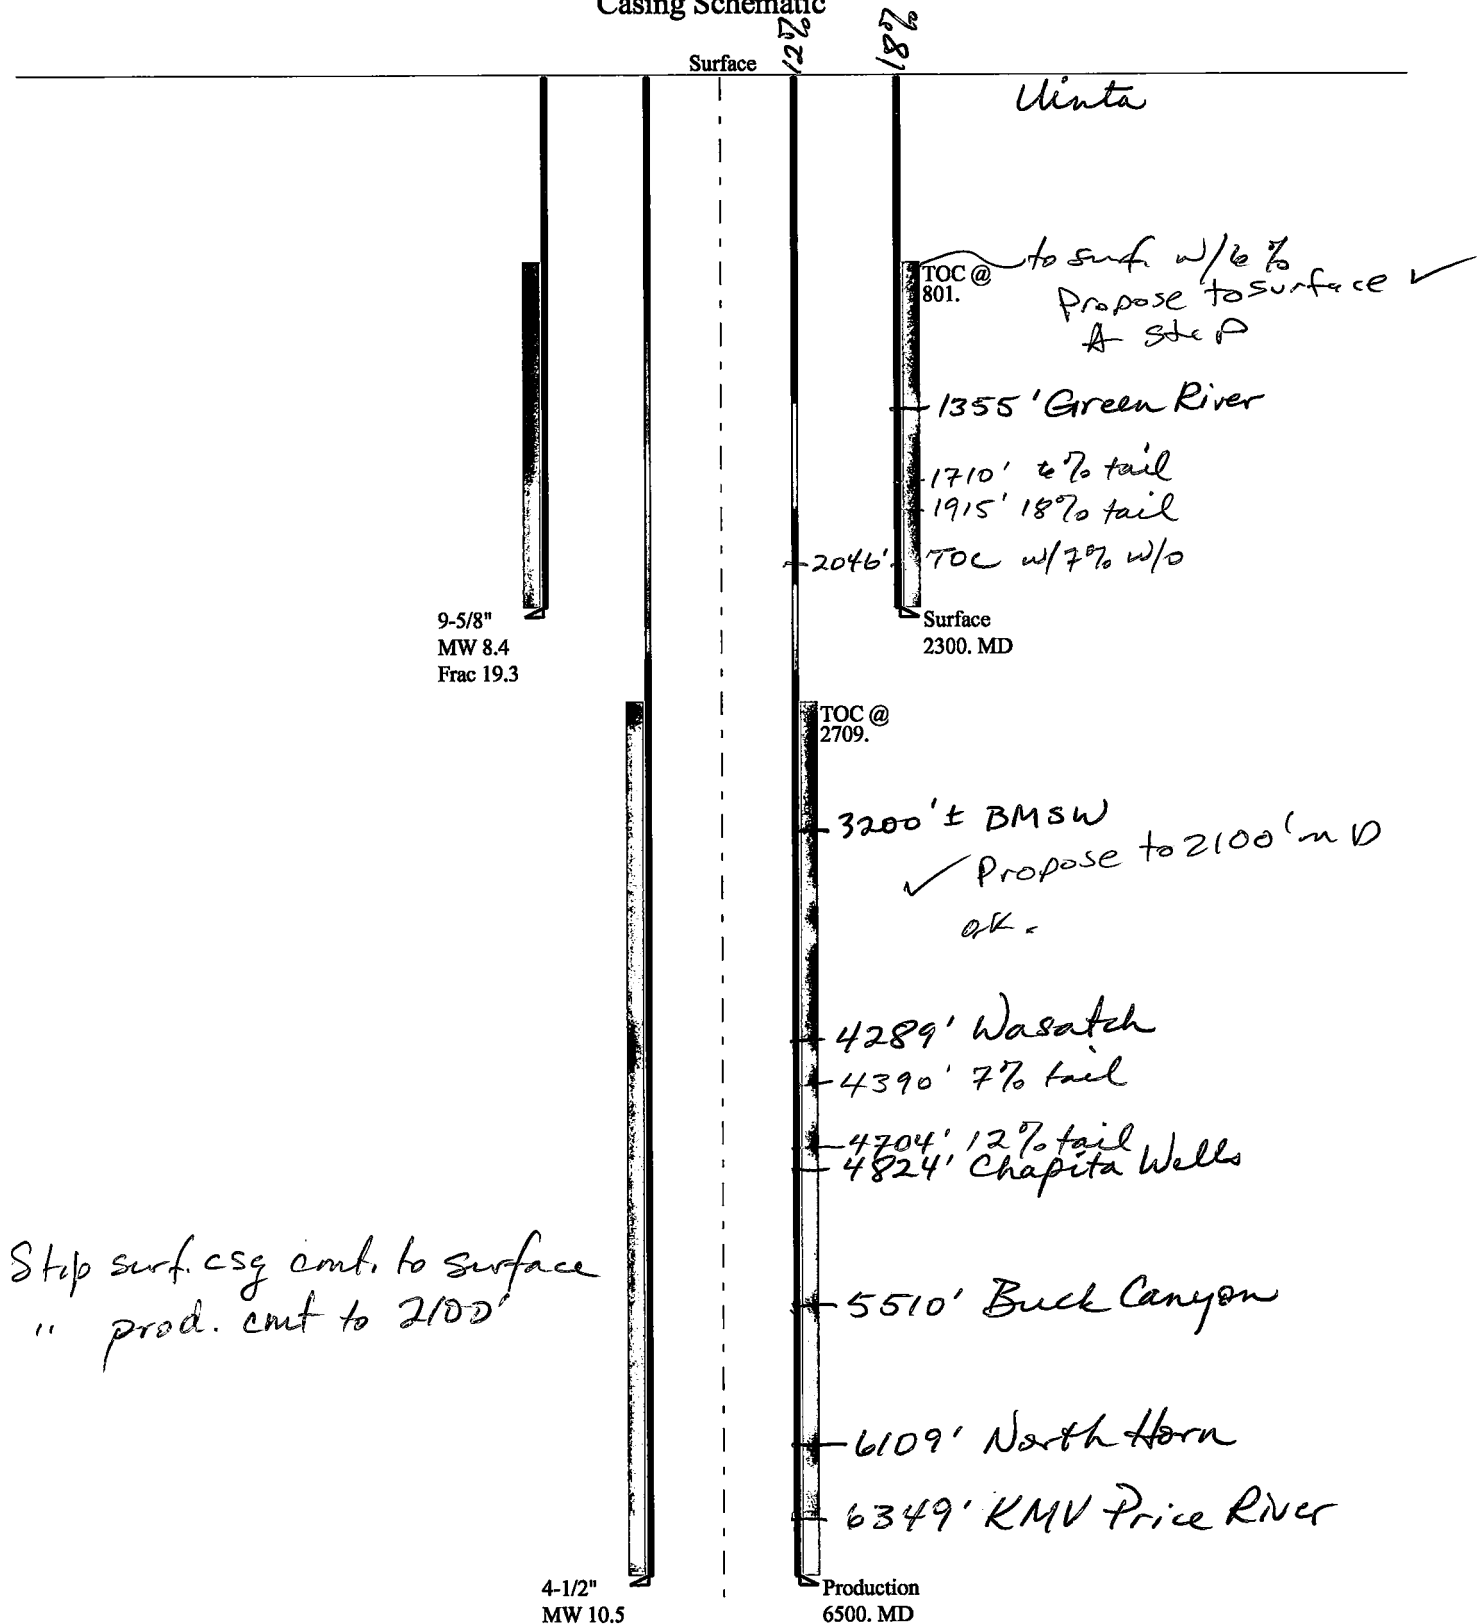 Casing Schematic
12%
18%
Surface
Uinta
TOC @
801.
to surf. w/6%
Propose to surface ✓
1355' Green River
1710' 6% tail
1915' 18% tail
2046' TOC w/7% w/o
9-5/8"
MW 8.4
Frac 19.3
Surface
2300. MD
TOC @
2709.
3200' ± BMSW
✓ Propose to 2100' MD
OK.
4289' Wasatch
4390' 7% tail
4704' 12% tail
4824' Chapita Wells
Stip surf. csg cmt. to surface
" prod. cmt to 2100'
5510' Buck Canyon
6109' North Horn
6349' KMV Price River
4-1/2"
MW 10.5
Production
6500. MD